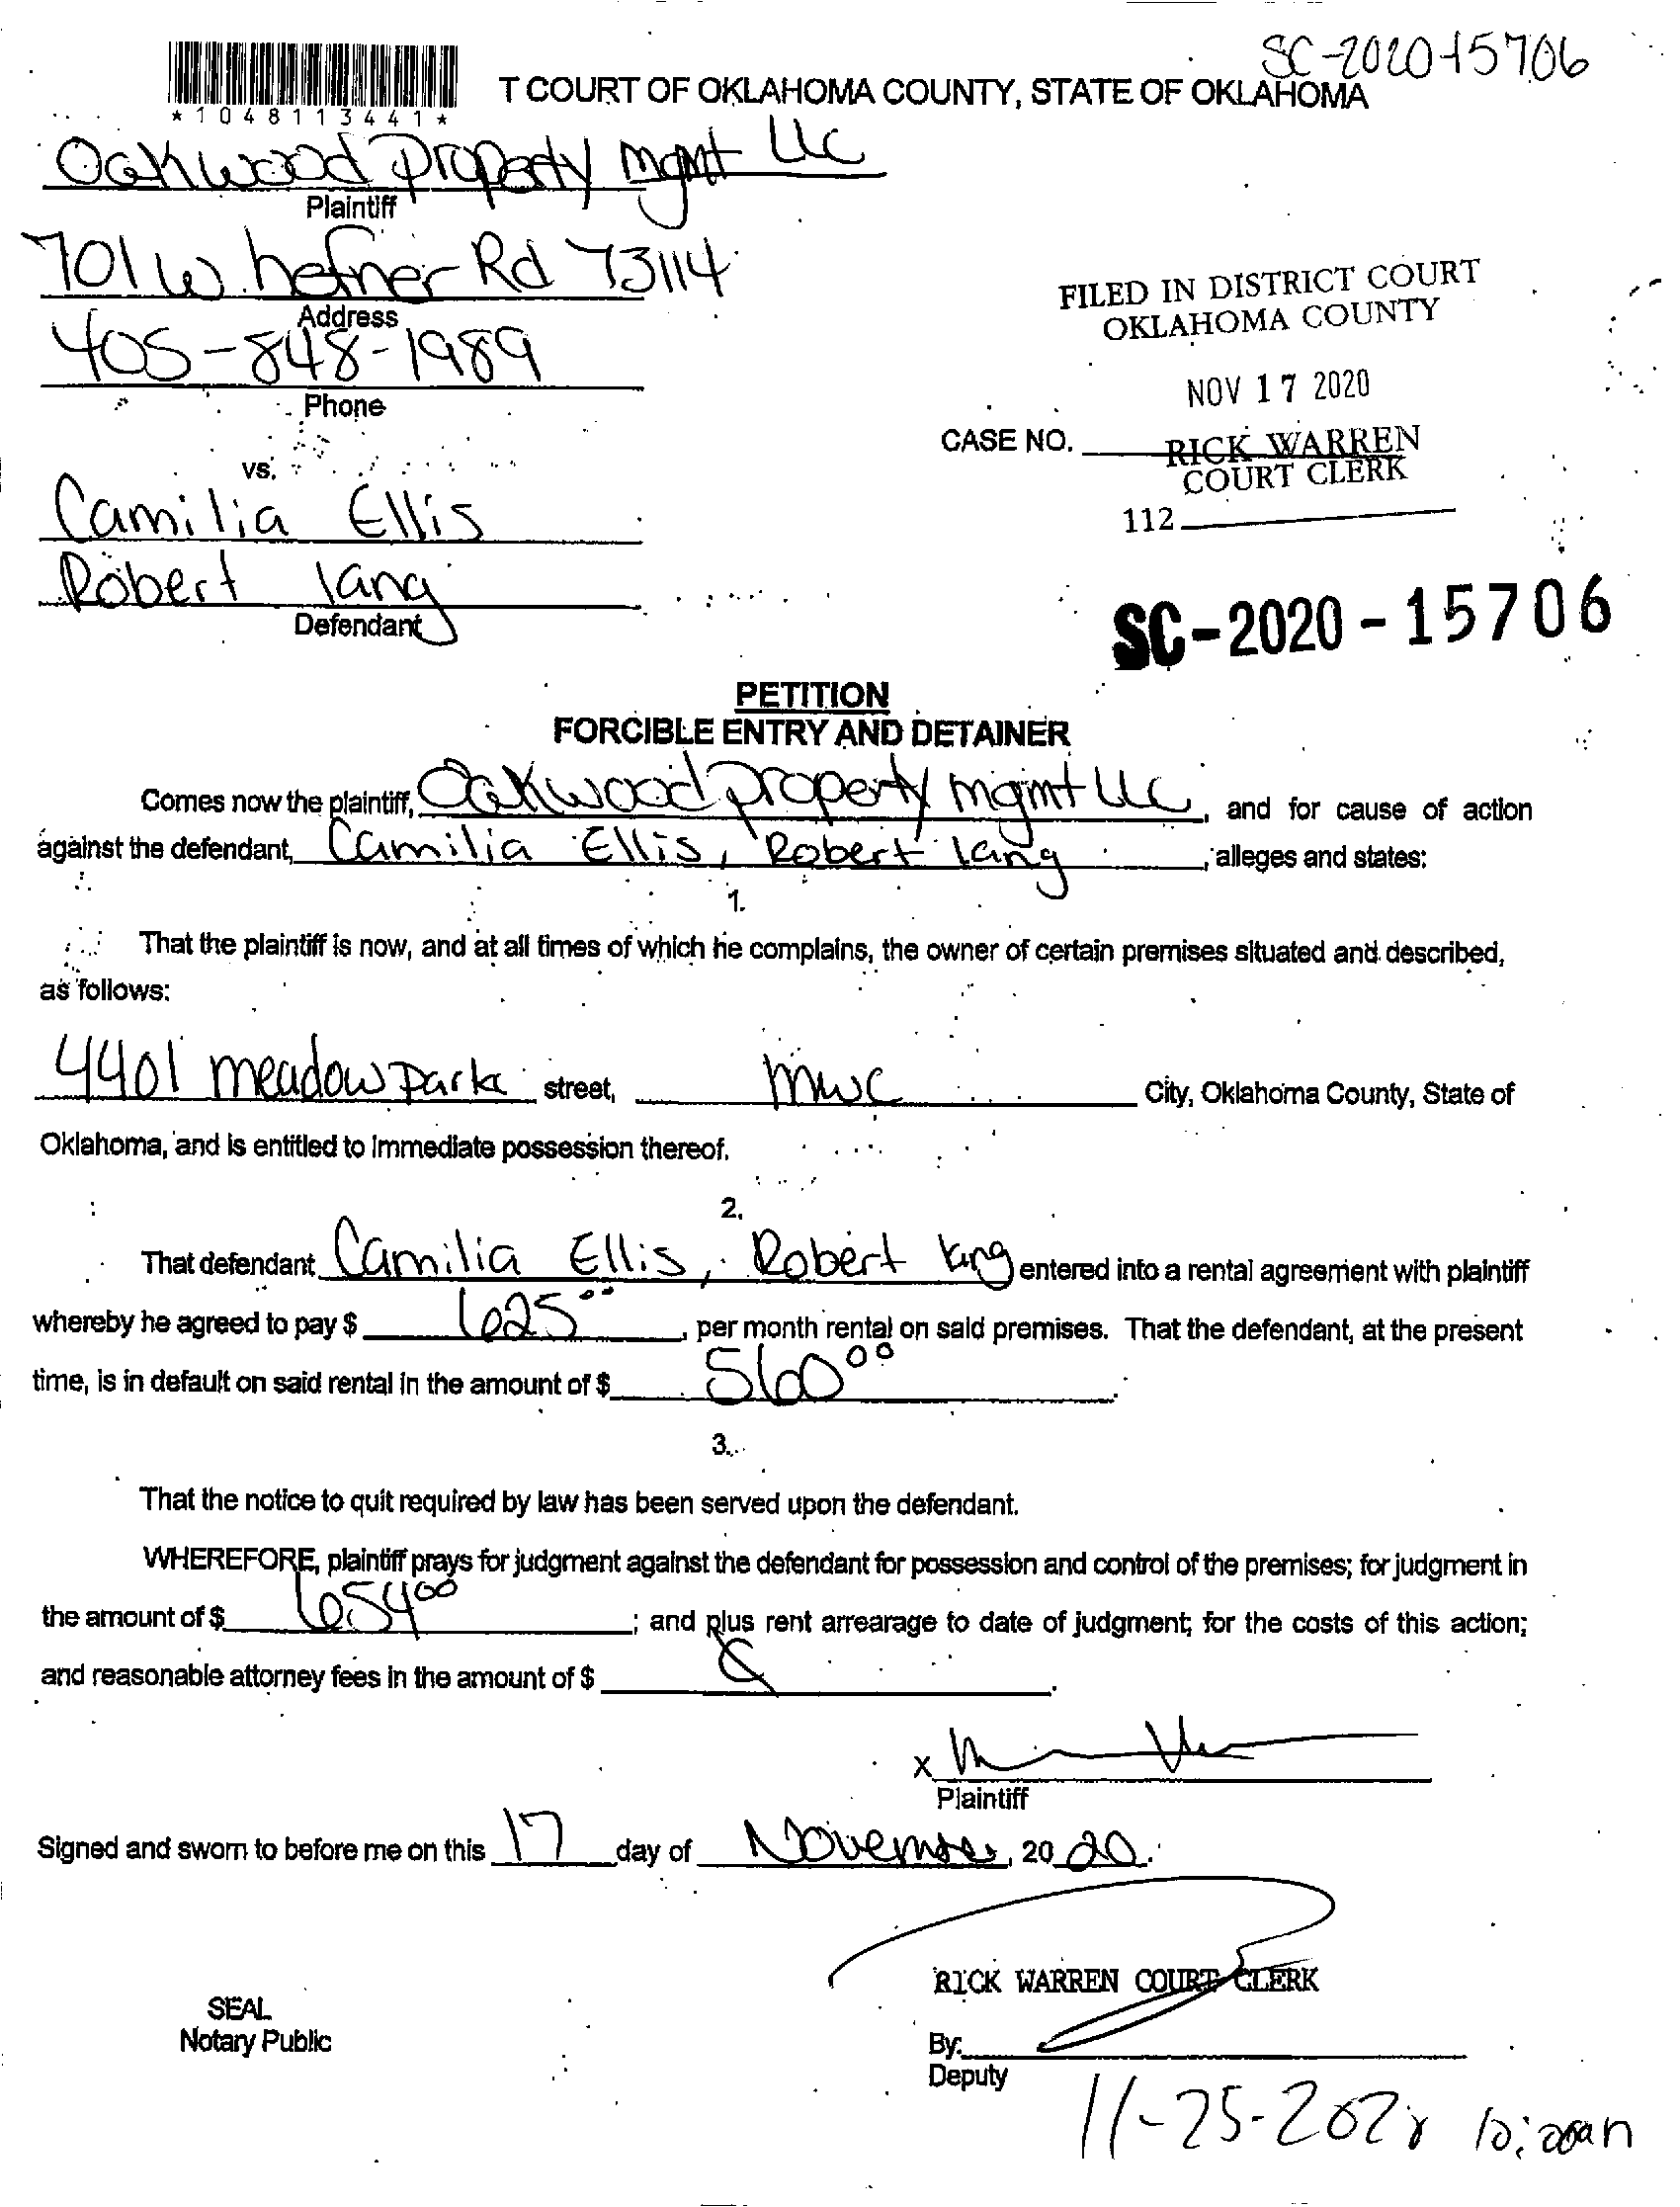 SC-2020-15706
T COURT OF OKLAHOMA COUNTY, STATE OF OKLAHOMA
*1048113441*
Oakwood Property mgmt LLC
Plaintiff
701 W. hefner Rd 73114
Address
405-848-1989
Phone
FILED IN DISTRICT COURT
OKLAHOMA COUNTY
NOV 17 2020
CASE NO.
RICK WARREN
COURT CLERK
112
vs.
Camilia Ellis
Robert lang
Defendant
SC-2020-15706
PETITION
FORCIBLE ENTRY AND DETAINER
Comes now the plaintiff, Oakwood property mgmt LLC, and for cause of action
against the defendant, Camilia Ellis, Robert lang, alleges and states:
1.
That the plaintiff is now, and at all times of which he complains, the owner of certain premises situated and described,
as follows:
4401 meadow park street, mwc City, Oklahoma County, State of
Oklahoma, and is entitled to immediate possession thereof.
2.
That defendant Camilia Ellis, Robert lang entered into a rental agreement with plaintiff
whereby he agreed to pay $ 625 00, per month rental on said premises. That the defendant, at the present
time, is in default on said rental in the amount of $ 560 00.
3.
That the notice to quit required by law has been served upon the defendant.
WHEREFORE, plaintiff prays for judgment against the defendant for possession and control of the premises; for judgment in
the amount of $ 654 00; and plus rent arrearage to date of judgment; for the costs of this action;
and reasonable attorney fees in the amount of $
x
Plaintiff
Signed and sworn to before me on this 17 day of November, 20 20.
RICK WARREN COURT CLERK
SEAL
Notary Public
By:
Deputy
11-25-202